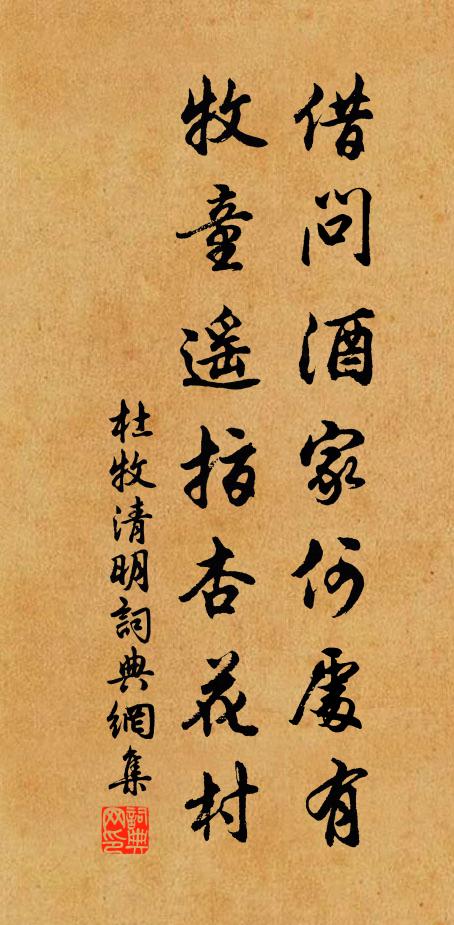 借問酒家何處有
牧童遙指杏花村
杜牧清明詞典網集
詞典網印